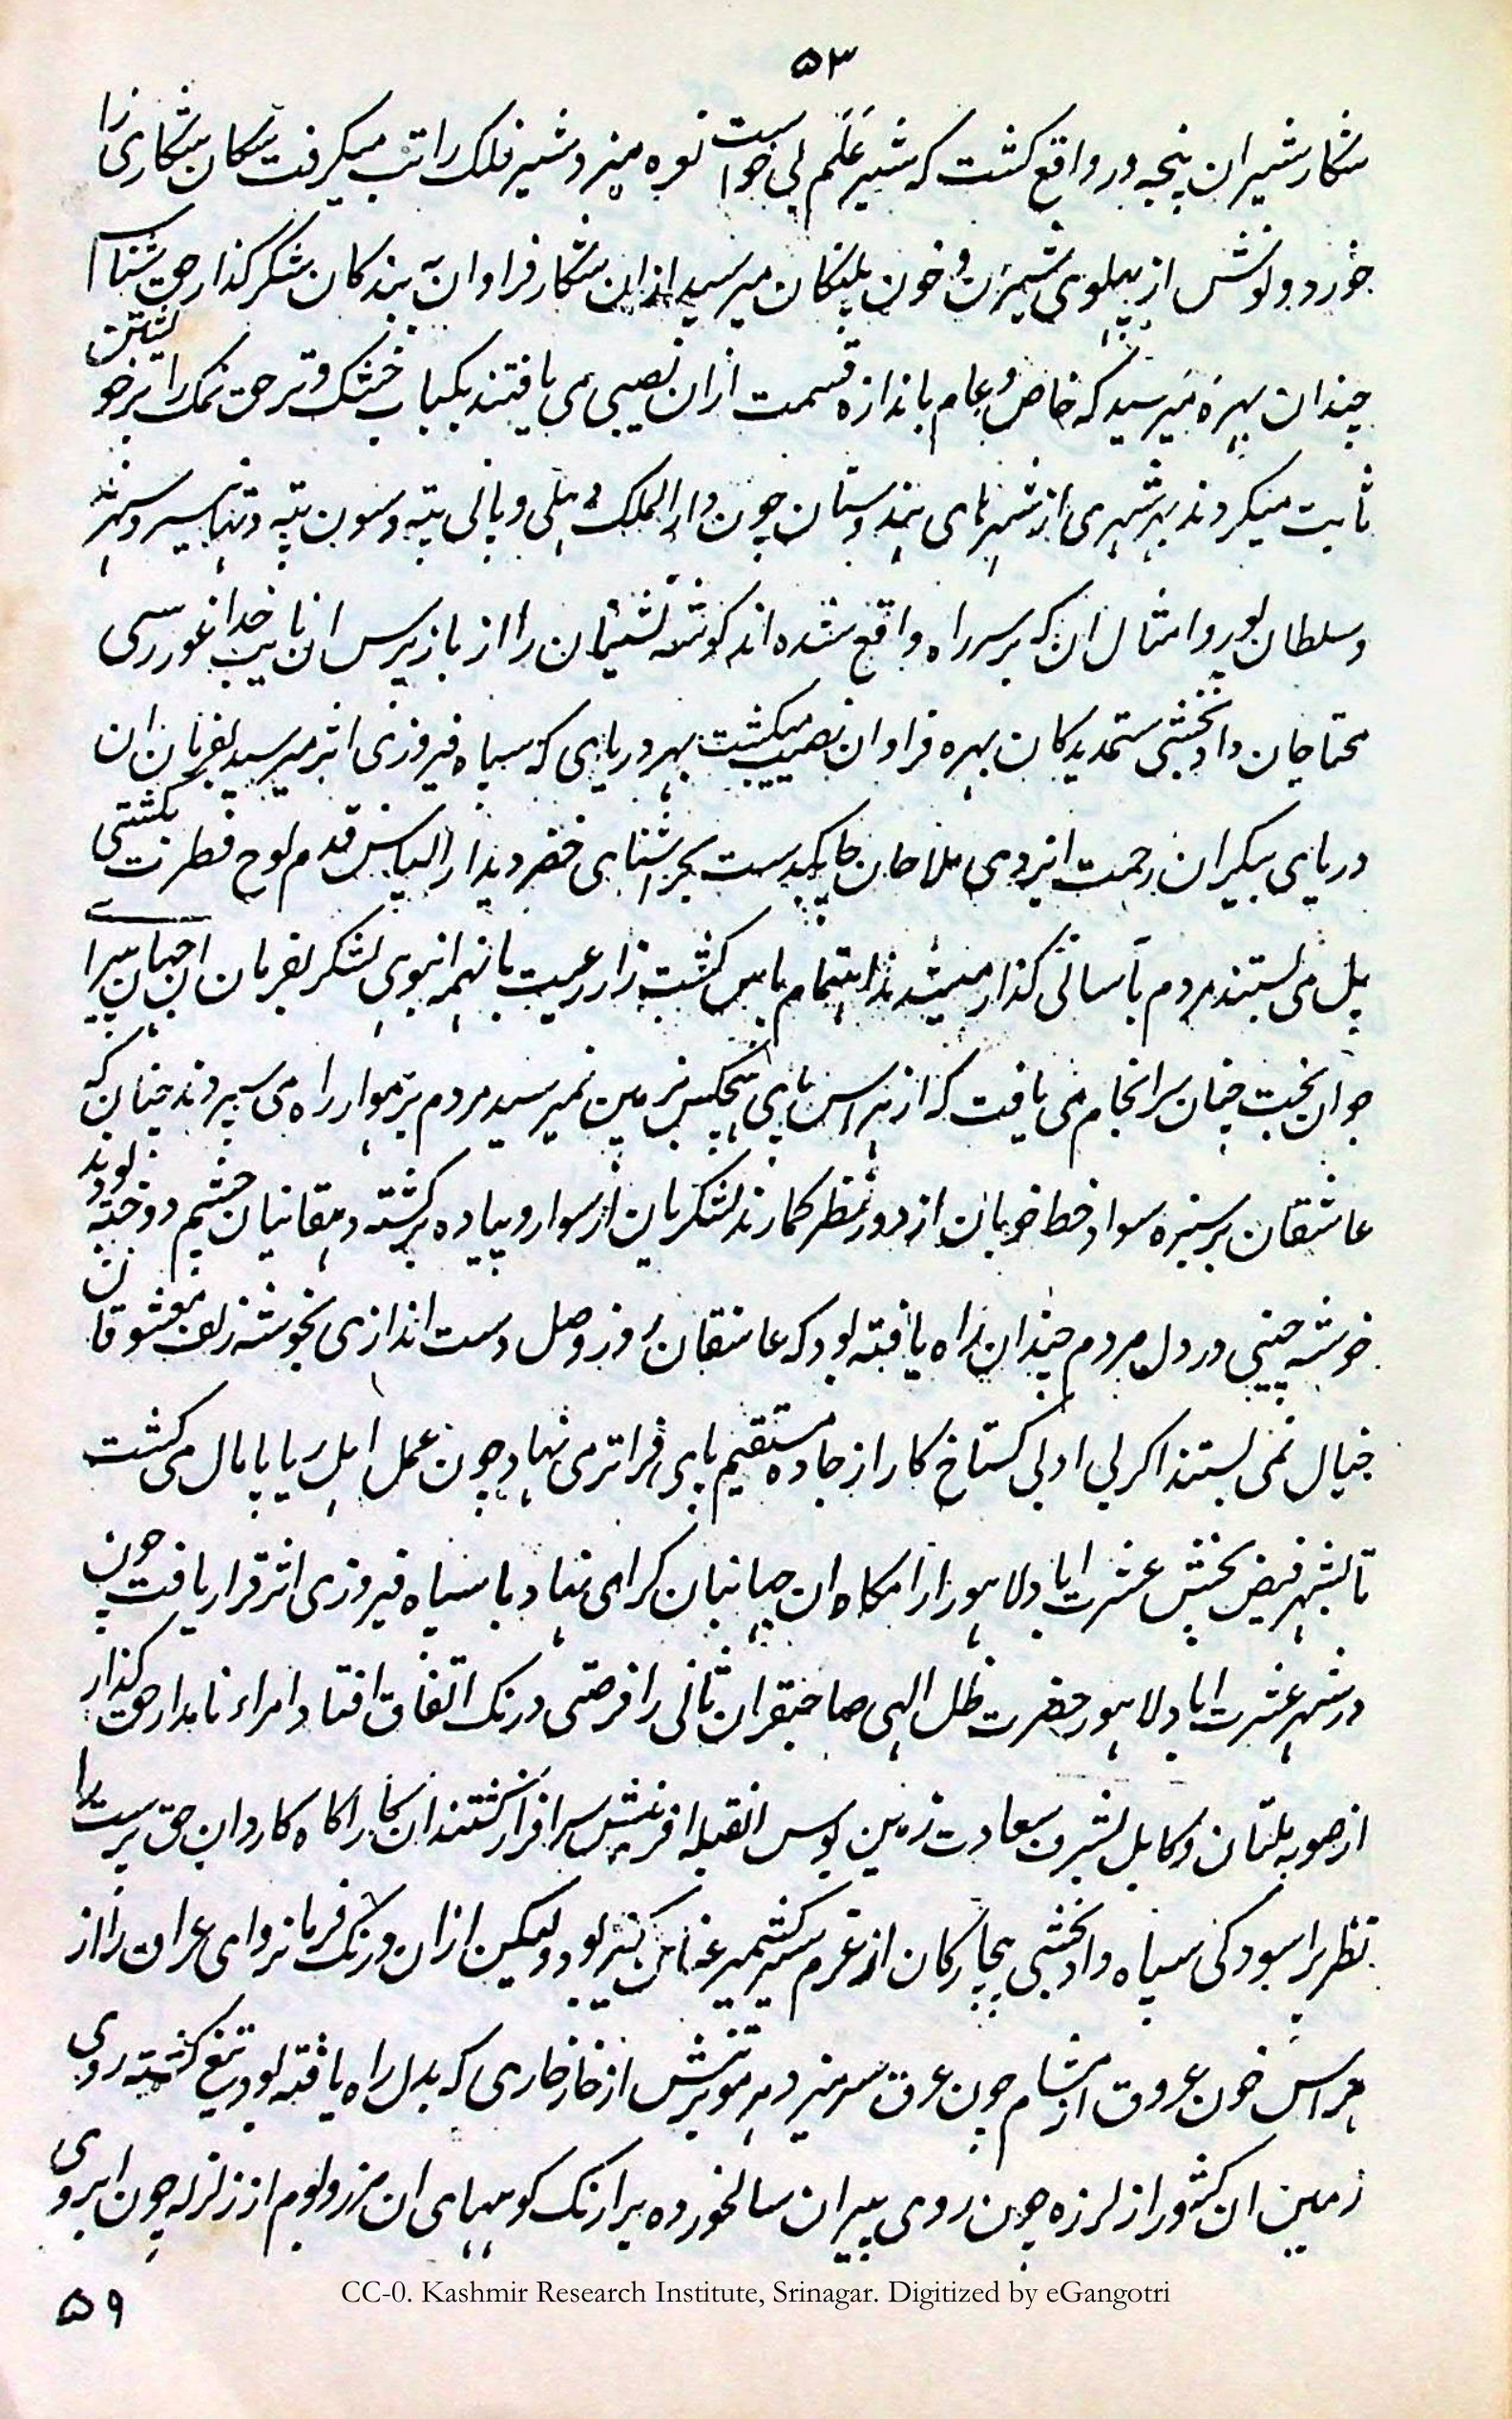 ۵۳
شکار شیران پنجه ور واقع کشت که شیر علم بی خواست نعره میزد و شیر فلک را تب میکرفت سکان شکاری را
خورد و نوش از پهلوی شیران و خون پلنکان میرسید ازان شکار فراوان به بندکان شکرکذار حق شناس
چندان بهره میرسید که خاص و عام باندازه قسمت ازان نصیبی می یافتند بکباب خشک و تر حق نمک را بر خویشتن
ثابت میکردند بهر شهری از شهرهای هندوستان چون دار الملک دهلی و پانی پته و سون پته و تهانیسر و سهرند
و سلطان پور و امثال ان که بر سر راه واقع شده اند کوشه نشینان را از باز پرس ان نایب خدا غور رسی
محتاجان دادبخشی ستمدیدکان بهره فراوان نصیب میکشت بهر دریای که سپاه فیروزی اثر میرسید بفرمان ان
دریای بیکران رحمت ایزدی ملاحان چابکدست بحر اشنای خضر دیدار الیاس قدم نوح فطرت بکشتی
پل می بستند مردم بآسانی کذار میشدند اهتمام پاس کشت زار رعیت بانهمه انبوی لشکر بفرمان ان جهان پیرای
جوان بخت چنان سرانجام می یافت که از هراس پای هیچکس بزمین نمیرسید مردم برهموار راه می سپردند چنان که
عاشقان بر سبزه سواد خط خوبان از دور نظر کمارند لشکریان از سوار و پیاده برکشته دهقانیان چشم دوخته بودند
خوشه چینی در دل مردم چندان راه یافته بود که عاشقان روز وصل دست اندازی بخوشه زلف معشوقان
خیال نمی بستند اکر بی ادبی کستاخ کار از جاده مستقیم پای فراتر می نهاد چون عمل اهل ریا پایمال می کشت
تا بشهر فیض بخش عشرت اباد لاهور ارامکاه ان جهانبان کرامی نهاد با سپاه فیروزی اثر قرار یافت چون
در شهر عشرت اباد لاهور حضرت ظل الهی صاحبقران ثانی را فرصتی درنک اتفاق افتاد امراء نامدار حق کذار
از صوبه ملتان و کابل بشرف سعادت زمین بوس انقبله افرینش سرافراز کشتند ان کار اکاه کاردان حق پرست را
نظر بر اسودکی سپاه و دادبخشی بیچارکان از عزم سیر کشمیر عنان کیر بود و لیکن ازان درنک فرمانروای عراق را از
هراس خون عروق از مشام چون عرق سر میزد هر موی تنش از خارخاری که بدل راه یافته بود تیغ کشته روی
زمین ان کشور از لرزه چون روی پیران سالخورده پرارنک کوههای ان مرز و بوم از زلزله چون ابروی
۵۹
CC-0. Kashmir Research Institute, Srinagar. Digitized by eGangotri